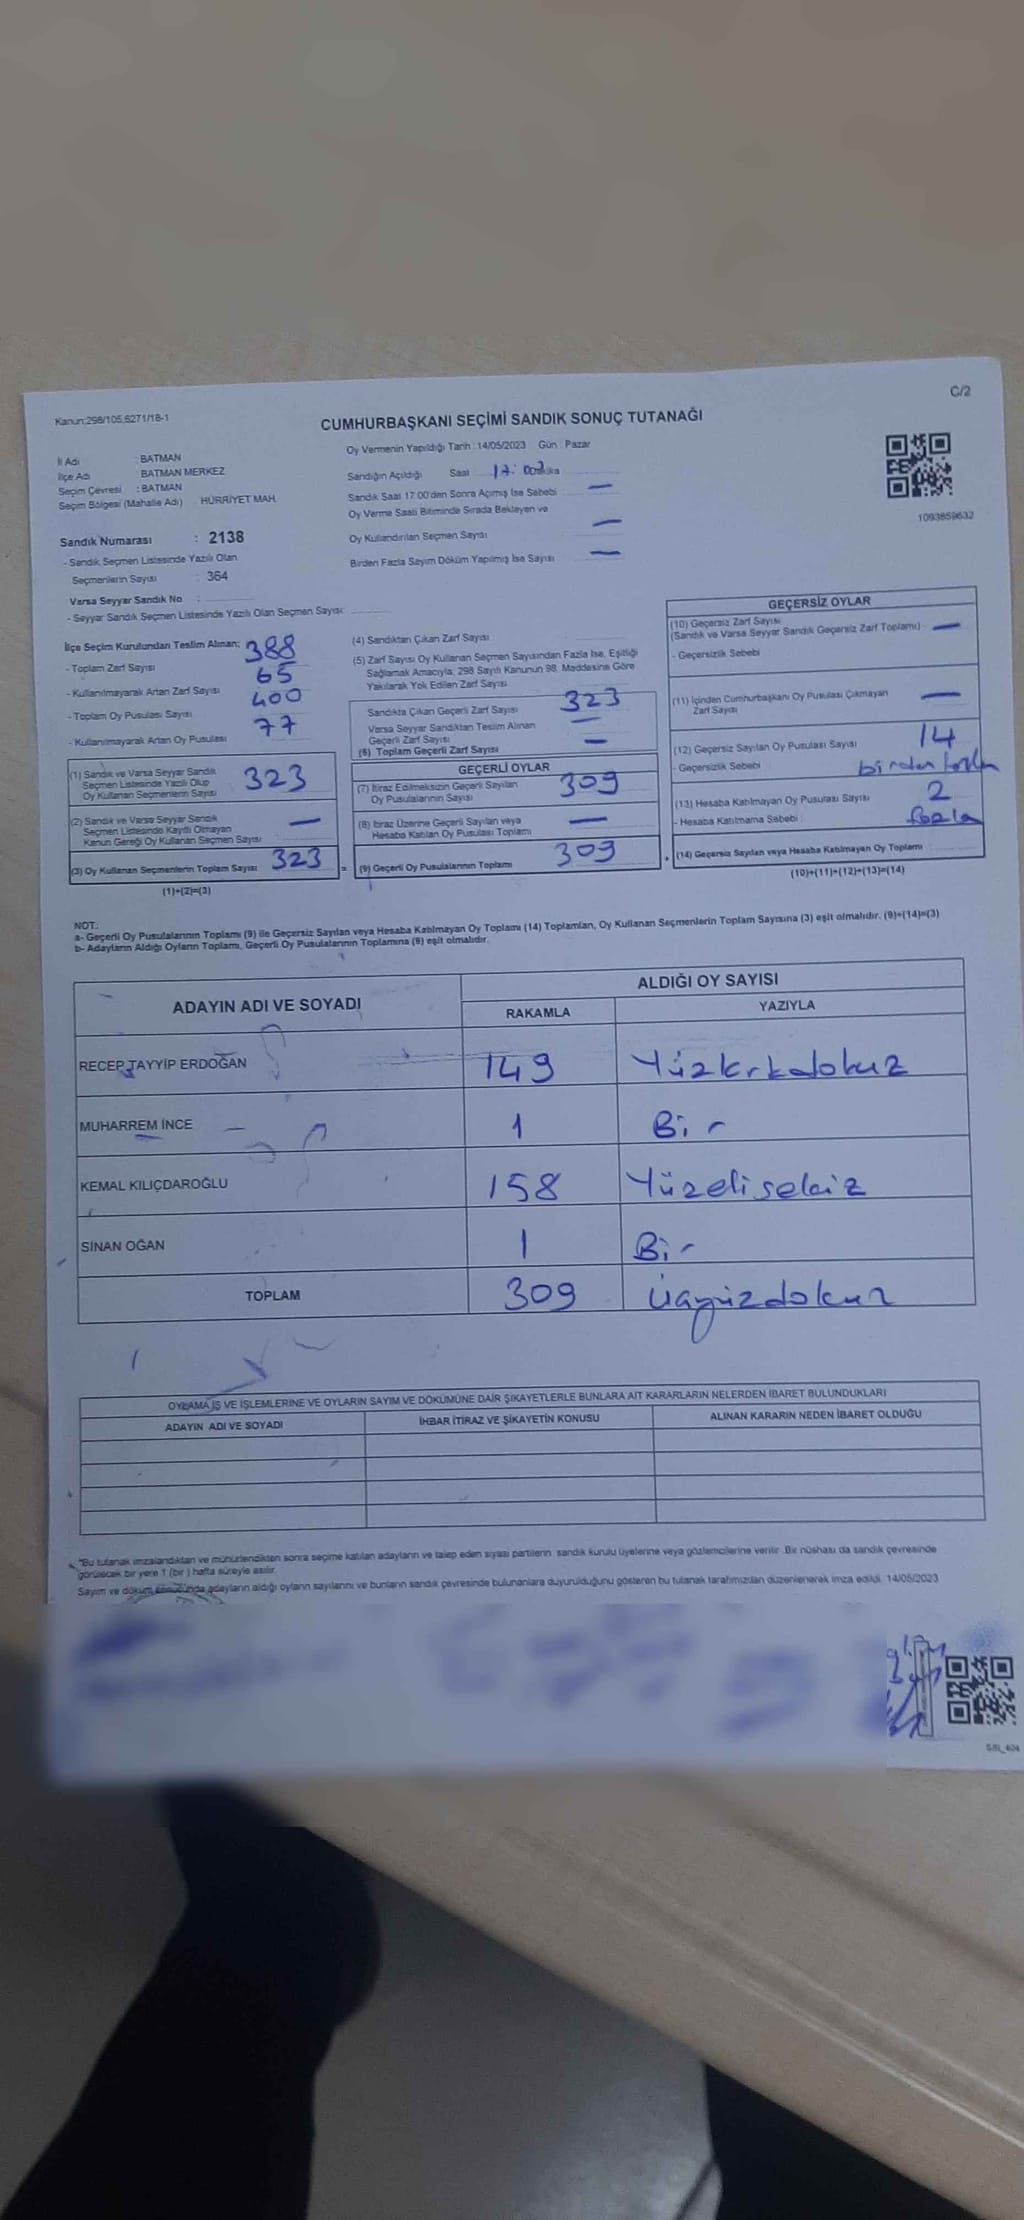 Kanun:298/105,6271/18-1
C/2
CUMHURBAŞKANI SEÇİMİ SANDIK SONUÇ TUTANAĞI
İl Adı : BATMAN
İlçe Adı : BATMAN MERKEZ
Seçim Çevresi : BATMAN
Seçim Bölgesi (Mahalle Adı) HÜRRİYET MAH.
Sandık Numarası : 2138
- Sandık Seçmen Listesinde Yazılı Olan
Seçmenlerin Sayısı : 364
Varsa Seyyar Sandık No :
- Seyyar Sandık Seçmen Listesinde Yazılı Olan Seçmen Sayısı:
Oy Vermenin Yapıldığı Tarih : 14/05/2023 Gün : Pazar
Sandığın Açıldığı Saat 17:00 Dakika
Sandık Saat 17:00'den Sonra Açımış İse Sebebi : —
Oy Verme Saati Bitiminde Sırada Bekleyen ve
Oy Kullandırılan Seçmen Sayısı —
Birden Fazla Sayım Döküm Yapılmış İse Sayısı —
1093859632
İlçe Seçim Kurulundan Teslim Alınan;
- Toplam Zarf Sayısı 388
- Kullanılmayarak Artan Zarf Sayısı 65
- Toplam Oy Pusulası Sayısı 400
- Kullanılmayarak Artan Oy Pusulası 77
(1) Sandık ve Varsa Seyyar Sandık
Seçmen Listesinde Yazılı Olup
Oy Kullanan Seçmenlerin Sayısı 323
(2) Sandık ve Varsa Seyyar Sandık
Seçmen Listesinde Kayıtlı Olmayan
Kanun Gereği Oy Kullanan Seçmen Sayısı —
(3) Oy Kullanan Seçmenlerin Toplam Sayısı 323 =
(1)+(2)=(3)
(4) Sandıktan Çıkan Zarf Sayısı
(5) Zarf Sayısı Oy Kullanan Seçmen Sayısından Fazla İse, Eşitliği
Sağlamak Amacıyla, 298 Sayılı Kanunun 98. Maddesine Göre
Yakılarak Yok Edilen Zarf Sayısı
Sandıkta Çıkan Geçerli Zarf Sayısı 323
Varsa Seyyar Sandıktan Teslim Alınan
Geçerli Zarf Sayısı —
(6) Toplam Geçerli Zarf Sayısı —
GEÇERLİ OYLAR
(7) İtiraz Edilmeksizin Geçerli Sayılan
Oy Pusulalarının Sayısı 309
(8) İtiraz Üzerine Geçerli Sayılan veya
Hesaba Katılan Oy Pusulası Toplamı —
(9) Geçerli Oy Pusulalarının Toplamı 309 +
GEÇERSİZ OYLAR
(10) Geçersiz Zarf Sayısı
(Sandık ve Varsa Seyyar Sandık Geçersiz Zarf Toplamı) : —
- Geçersizlik Sebebi
(11) İçinden Cumhurbaşkanı Oy Pusulası Çıkmayan
Zarf Sayısı —
(12) Geçersiz Sayılan Oy Pusulası Sayısı 14
- Geçersizlik Sebebi birden fazla
(13) Hesaba Katılmayan Oy Pusulası Sayısı 2
- Hesaba Katılmama Sebebi : fazla
(14) Geçersiz Sayılan veya Hesaba Katılmayan Oy Toplamı
(10)+(11)+(12)+(13)=(14)
NOT:
a- Geçerli Oy Pusulalarının Toplamı (9) ile Geçersiz Sayılan veya Hesaba Katılmayan Oy Toplamı (14) Toplamları, Oy Kullanan Seçmenlerin Toplam Sayısına (3) eşit olmalıdır. (9)+(14)=(3)
b- Adayların Aldığı Oyların Toplamı, Geçerli Oy Pusulalarının Toplamına (9) eşit olmalıdır.
ADAYIN ADI VE SOYADI ALDIĞI OY SAYISI
RAKAMLA YAZIYLA
RECEP TAYYİP ERDOĞAN 149 Yüzkırkdokuz
MUHARREM İNCE 1 Bir
KEMAL KILIÇDAROĞLU 158 Yüzelisekiz
SİNAN OĞAN 1 Bir
TOPLAM 309 Üçyüzdokuz
OYLAMA İŞ VE İŞLEMLERİNE VE OYLARIN SAYIM VE DÖKÜMÜNE DAİR ŞİKAYETLERLE BUNLARA AİT KARARLARIN NELERDEN İBARET BULUNDUKLARI
ADAYIN ADI VE SOYADI İHBAR İTİRAZ VE ŞİKAYETİN KONUSU ALINAN KARARIN NEDEN İBARET OLDUĞU
"Bu tutanak imzalandıktan ve mühürlendikten sonra seçime katılan adayların ve talep eden siyasi partilerin sandık kurulu üyelerine veya gözlemcilerine verilir. Bir nüshası da sandık çevresinde
görülecek bir yere 1 (bir ) hafta süreyle asılır.
Sayım ve döküm sonucunda adayların aldığı oyların sayılarını ve bunların sandık çevresinde bulunanlara duyurulduğunu gösteren bu tutanak tarafımızdan düzenlenerek imza edildi. 14/05/2023